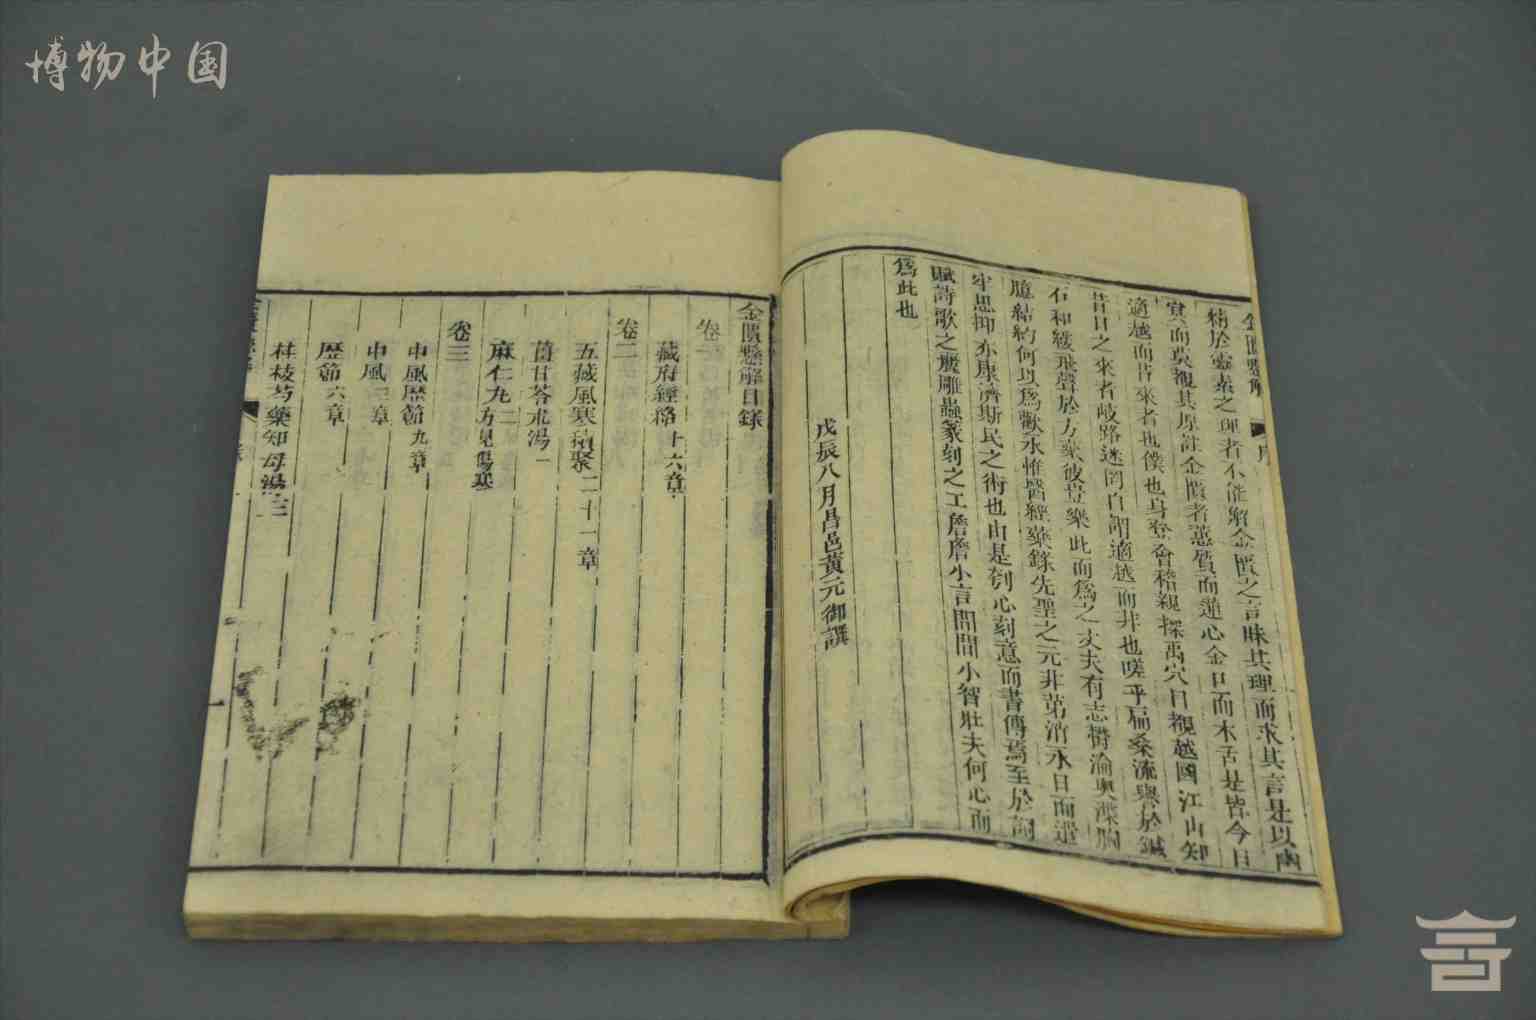 博物中国
精於靈素之理者不能解金匱之言昧其理而求其言是以南
轅而莫覩其原註金匱者蕙質而蓬心金口而木舌是皆今日
適越而昔來者也僕也身登會稽親探禹穴目覩越國江山知
昔日之來者岐路迷罔自謂適越而非也嗟乎扁桑流譽於鍼
石和緩飛聲於方藥彼豈樂此而爲之丈夫有志鬱淪奧渫胸
臆結約何以爲歡永惟醫經藥錄先聖之元非第消永日而遣
牢思抑亦康濟斯民之術也由是刳心刻意而書傳焉至於詞
賦詩歌之雕蟲篆刻之工詹詹小言間間小智壯夫何心而
爲此也
戊辰八月昌邑黃元御譔
金匱懸解目錄
卷一
藏府經絡十六章
卷二
五藏風寒積聚二十一章
薑甘苓朮湯一
麻仁丸二方見傷寒
卷三
中風歷節九章
中風三章
歷節六章
桂枝芍藥知母湯三